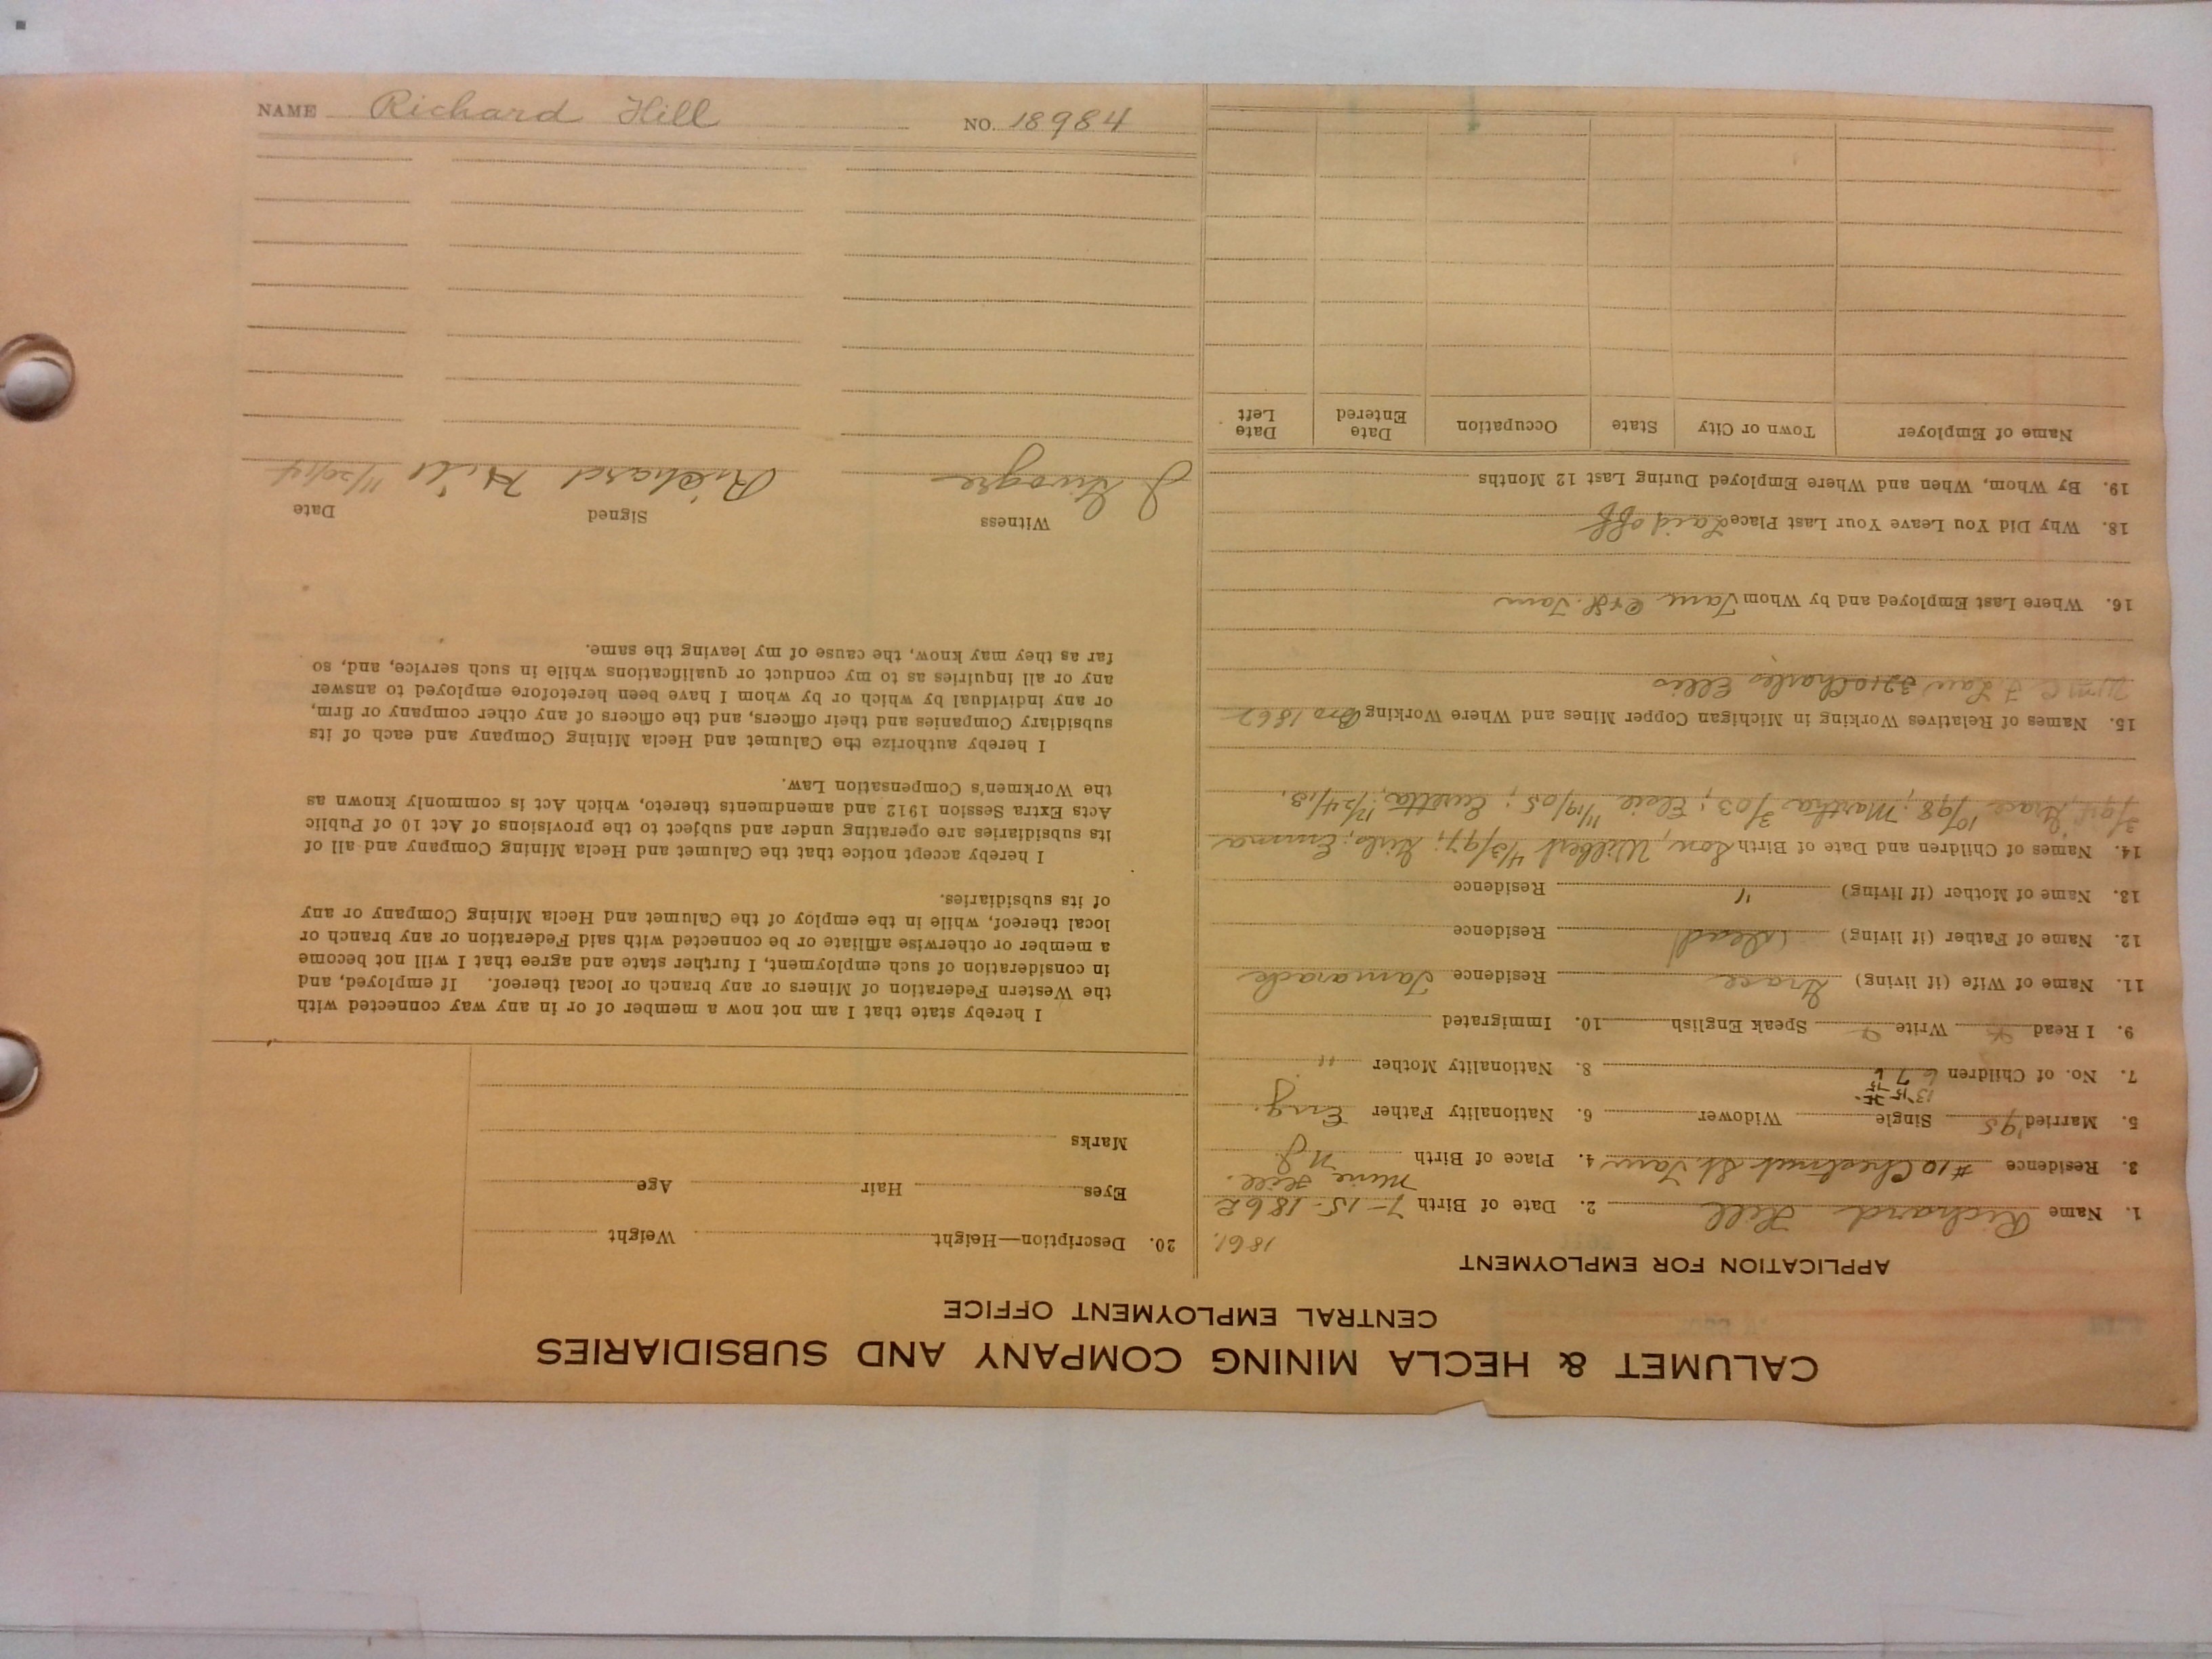 CALUMET & HECLA MINING COMPANY AND SUBSIDIARIES
CENTRAL EMPLOYMENT OFFICE
APPLICATION FOR EMPLOYMENT
1861.
1. Name Richard Hill 2. Date of Birth 7-15-1862
3. Residence #10 Chestnut St. Tam 4. Place of Birth Mine Hill. N.J.
5. Married '95 Single Widower 6. Nationality Father Eng.
7. No. of Children 6 7 8. Nationality Mother "
9. I Read Write Speak English 10. Immigrated
11. Name of Wife (if living) Grace Residence Tamarack
12. Name of Father (if living) (Dead) Residence
13. Name of Mother (if living) " Residence
14. Names of Children and Date of Birth Son, Wilbert 4/3/97; Girls, Emma
3/96, Grace 10/98; Martha 3/03; Elsie 11/19/05; Luretta, 12/24/13.
15. Names of Relatives Working in Michigan Copper Mines and Where Working Bro 1862
Law 3210 Charles Ellis
16. Where Last Employed and by Whom Tam C & H. Tam
18. Why Did You Leave Your Last Place Laid off
19. By Whom, When and Where Employed During Last 12 Months
Name of Employer Town or City State Occupation Date Entered Date Left
20. Description—Height Weight
Eyes Hair Age
Marks
I hereby state that I am not now a member of or in any way connected with
the Western Federation of Miners or any branch or local thereof. If employed, and
in consideration of such employment, I further state and agree that I will not become
a member or otherwise affiliate or be connected with said Federation or any branch or
local thereof, while in the employ of the Calumet and Hecla Mining Company or any
of its subsidiaries.
I hereby accept notice that the Calumet and Hecla Mining Company and all of
its subsidiaries are operating under and subject to the provisions of Act 10 of Public
Acts Extra Session 1912 and amendments thereto, which Act is commonly known as
the Workmen's Compensation Law.
I hereby authorize the Calumet and Hecla Mining Company and each of its
subsidiary Companies and their officers, and the officers of any other company or firm,
or any individual by which or by whom I have been heretofore employed to answer
any or all inquiries as to my conduct or qualifications while in such service, and, so
far as they may know, the cause of my leaving the same.
Witness Signed Date
J. Richard Hill 11/20/14
NAME Richard Hill NO. 18984